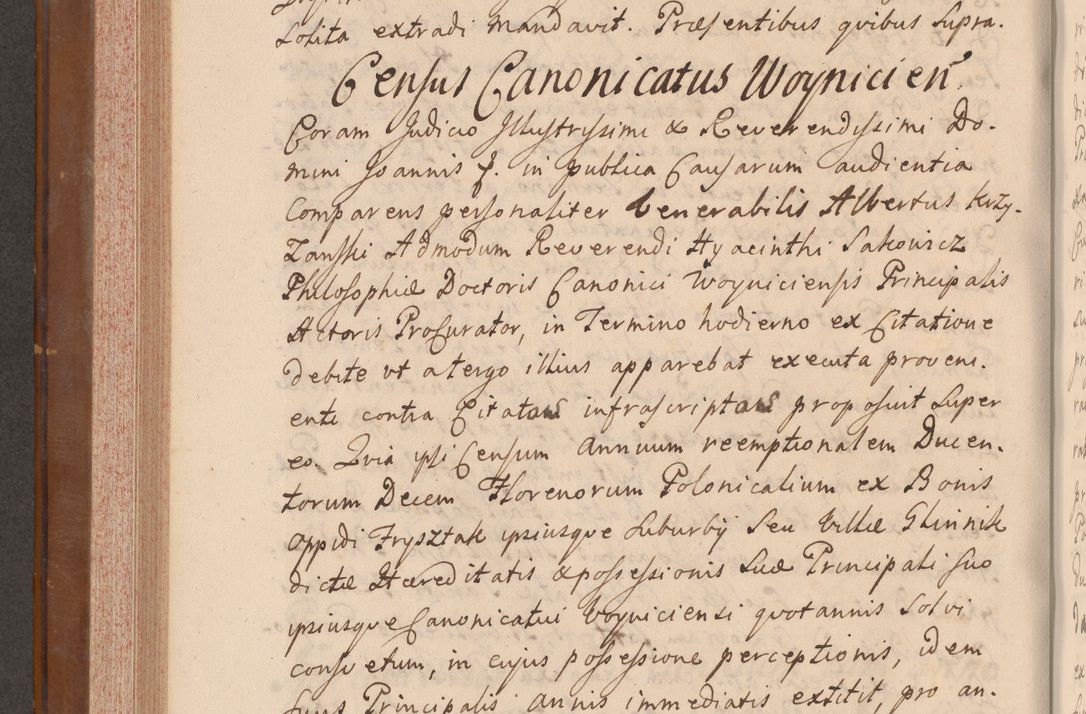 Solita extradi mandavit. Præsentibus qvibus supra.
Census Canonicatus Woynicien
Coram Judicio Illustrissimi & Reverendissimi Do-
mini Joannis f. in publica Causarum audientia
Comparens personaliter Venerabilis Albertus Krzy-
zanski Admodum Reverendi Hyacinthi Sakowicz
Philosophiæ Doctoris Canonici Woyniciensis Principalis
Actoris Procurator, in Termino hodierno ex Citatione
debite ut a tergo illius apparebat executa proveni-
enti contra Citatam infrascriptam proposuit super
eo. Qvia ipsi Censum annuum reemptionalem Ducen-
torum Decem Florenorum Polonicalium ex Bonis
oppidi Frysztak ipsiusqve Suburbij Seu Villæ Glinnik
dictæ Hæreditatis & possessionis Suæ Principali suo
ipsiusqve Canonicatui Woyniciensi qvotannis Solvi
consvetum, in cujus possessione perceptionis, idem
suus Principalis annis immediatis extitit, pro an-